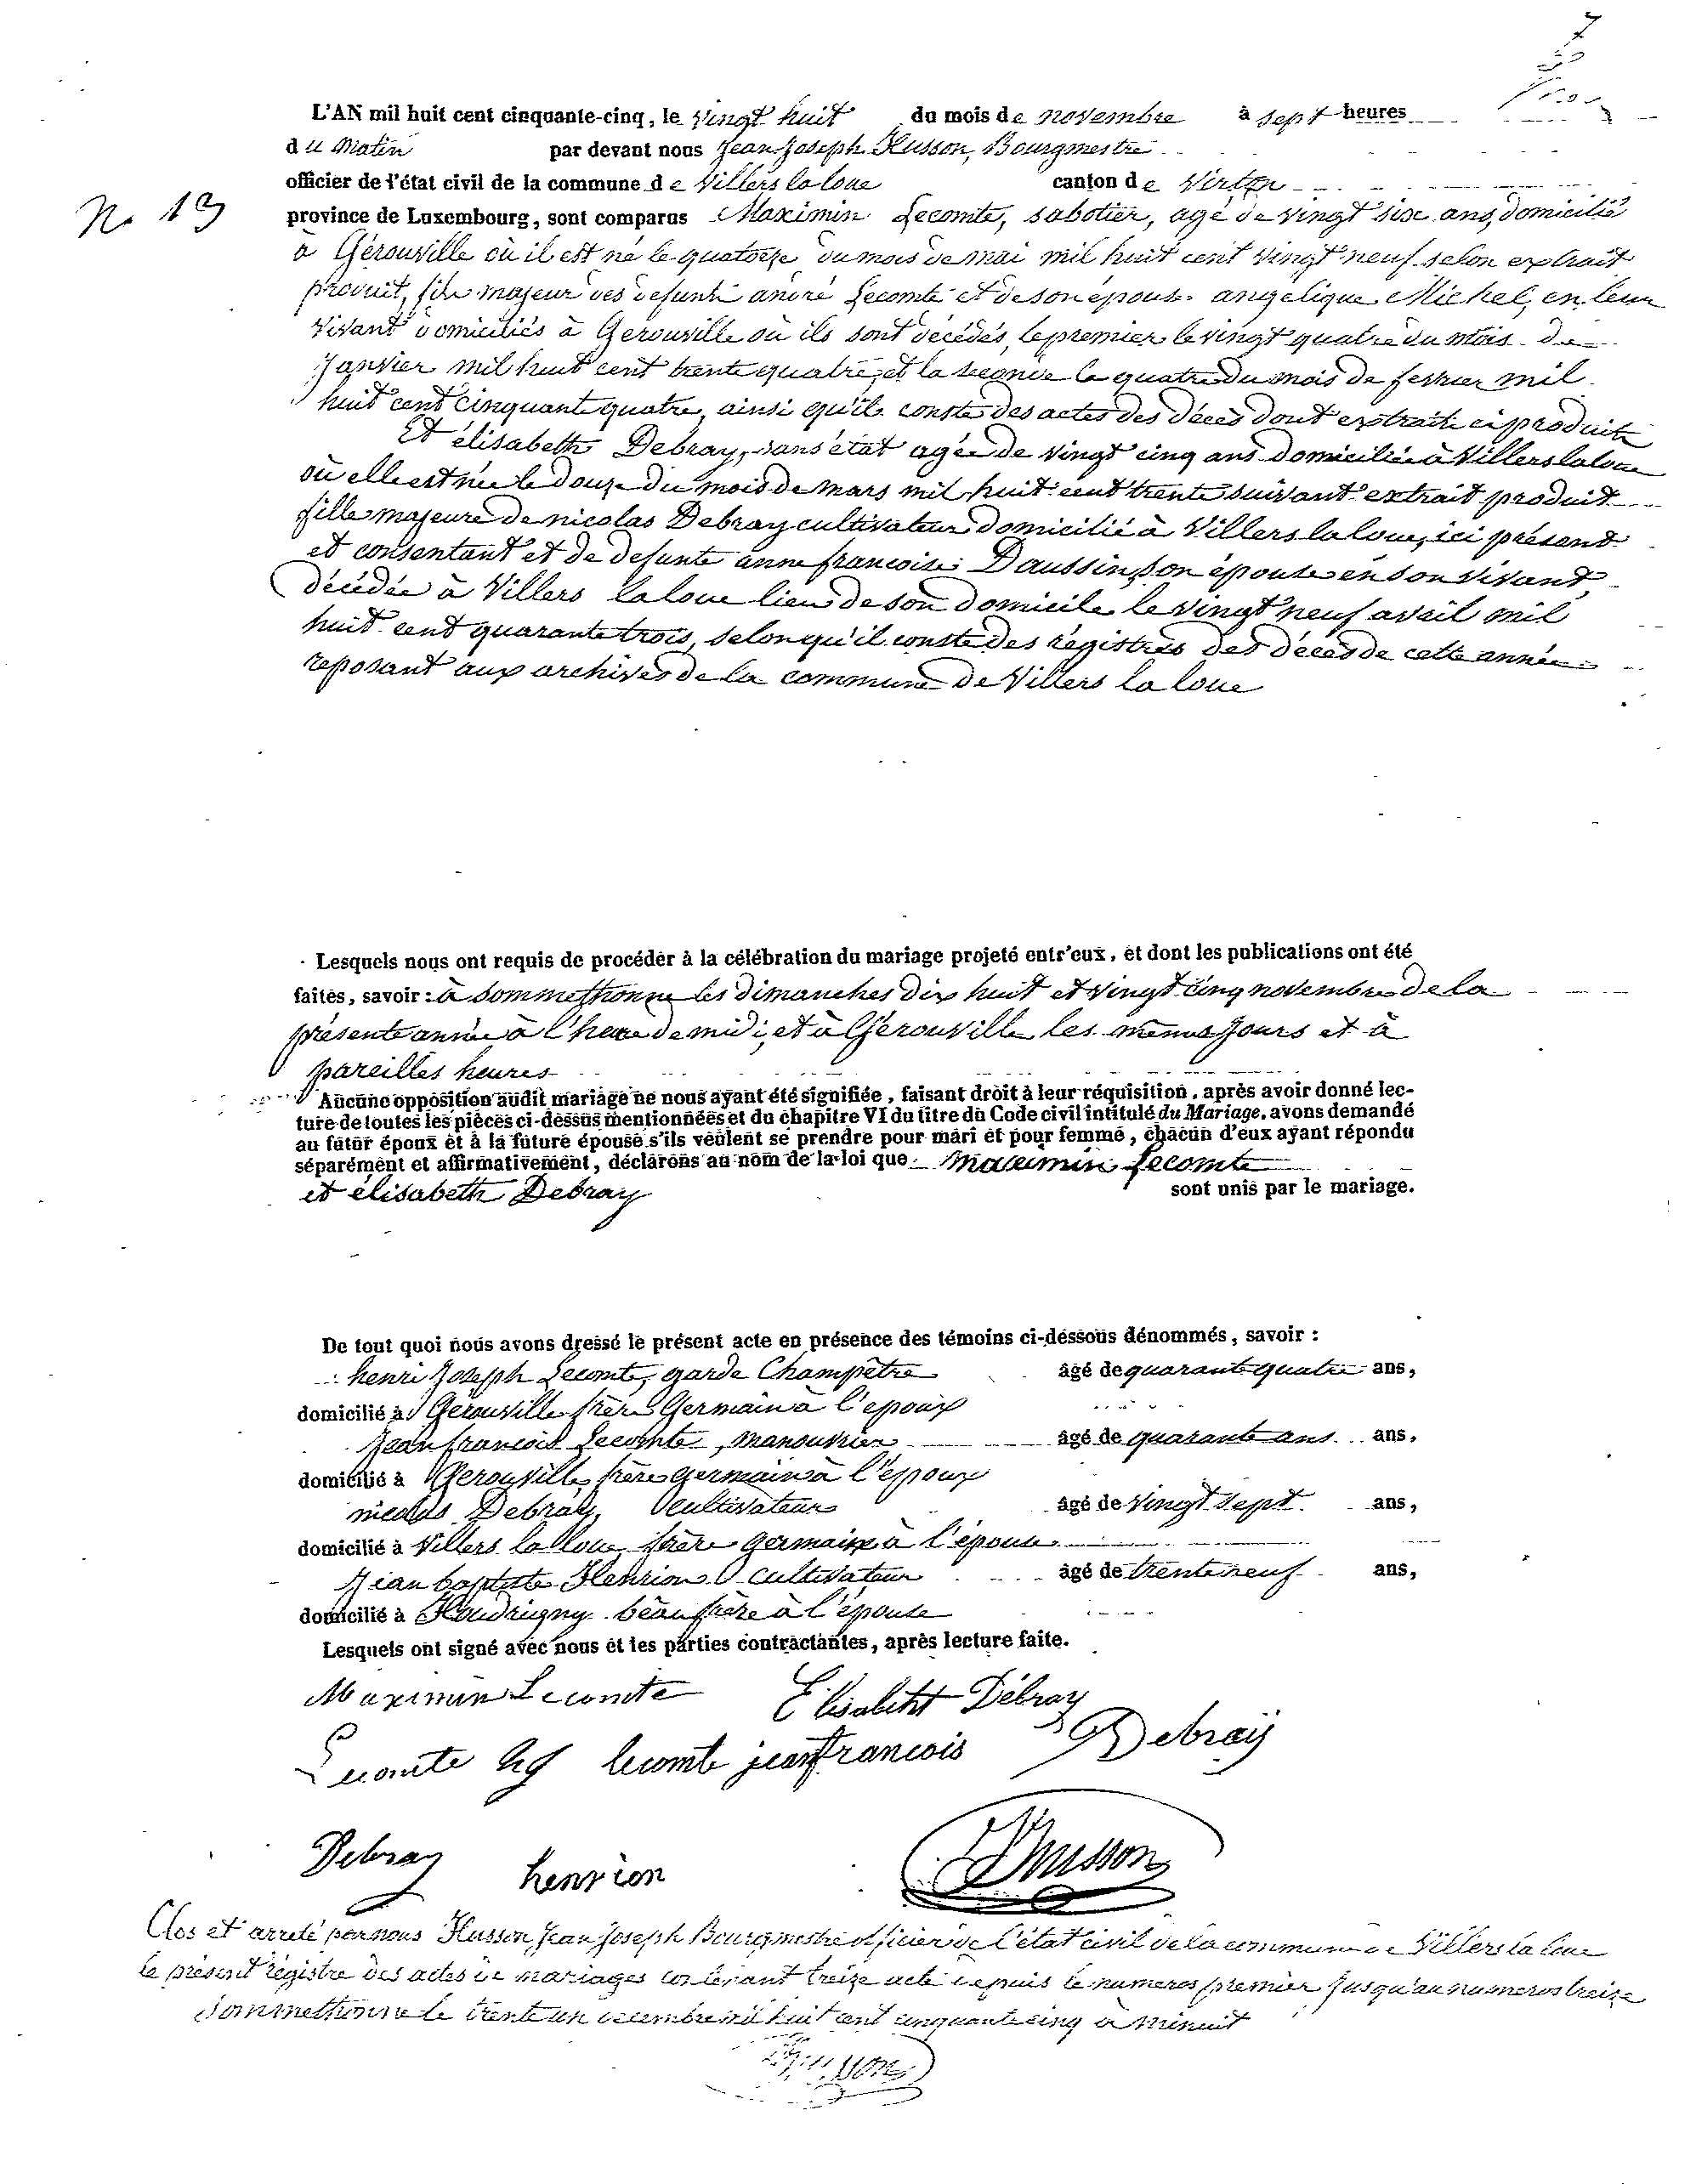 7
L'AN mil huit cent cinquante-cinq, le vingt huit du mois de novembre à sept heures
du matin par devant nous Jean Joseph Husson, Bourgmestre
officier de l'état civil de la commune de Villers la loue canton de Virton
N° 13
province de Luxembourg, sont comparus Maximin Lecomte, sabotier, agé de vingt six ans, domicilié
à Gérouville où il est né le quatorze du mois de mai mil huit cent vingt neuf selon extrait
produit, fils majeur des defunts andré Lecomte et de son épouse angelique Michel, en leur
vivant domiciliés à Gerouville où ils sont décédés, le premier le vingt quatre du mois de
Janvier mil huit cent trente quatre, et la seconde le quatre du mois de fevrier mil
huit cent cinquante quatre, ainsi qu'il conste des actes des décès dont extraits ci produits
Et élisabeth Debray, sans état agée de vingt cinq ans domiciliée à Villers la loue
où elle est née le douze du mois de mars mil huit cent trente suivant extrait produit
fille majeure de nicolas Debray cultivateur domicilié à Villers la loue, ici présent
et consentant et de defunte anne francoise Daussin, son épouse en son vivant,
décédée à Villers la loue lieu de son domicile le vingt neuf avril mil
huit cent quarante trois, selon qu'il conste des régistres des décès de cette année
reposant aux archives de la commune de Villers la loue
Lesquels nous ont requis de procéder à la célébration du mariage projeté entr'eux, et dont les publications ont été
faites, savoir : à Sommethonne les dimanches dix huit et vingt cinq novembre de la
présente année à l'heure de midi, et à Gérouville les mêmes jours et à
pareilles heures
Aucune opposition audit mariage ne nous ayant été signifiée, faisant droit à leur réquisition, après avoir donné lec-
ture de toutes les pièces ci-dessus mentionnées et du chapitre VI du titre du Code civil intitulé du Mariage, avons demandé
au futur époux et à la future épouse s'ils veulent se prendre pour mari et pour femme, chacun d'eux ayant répondu
séparément et affirmativement, déclarons au nom de la loi que Maximin Lecomte
et élisabeth Debray sont unis par le mariage.
De tout quoi nous avons dressé le présent acte en présence des témoins ci-dessous dénommés, savoir :
henri Joseph Lecomte, garde Champêtre âgé de quarante quatre ans,
domicilié à Gérouville frère Germain à l'epoux
Jean francois Lecomte, manouvrier âgé de quarante ans ans,
domicilié à Gerouville, frère germain à l'époux
nicolas Debray, cultivateur âgé de vingt sept ans,
domicilié à Villers la loue, frère germain à l'épouse
Jean baptiste Henrion cultivateur âgé de trente neuf ans,
domicilié à Houdrigny beau frère à l'épouse
Lesquels ont signé avec nous et les parties contractantes, après lecture faite.
Maximin Lecomte Elisabeth Débray
Lecomte hj lecomte jean francois Debray
Debray henrion JJhusson
Clos et arreté par nous Husson Jean Joseph Bourgmestre officier de l'état civil de la commune de Villers la loue
le présent régistre des actes de mariages contenant treize acte depuis le numeros premier jusqu'au numeros treize
Sommethonne le trente un decembre mil huit cent cinquante cinq à minuit
JJhusson